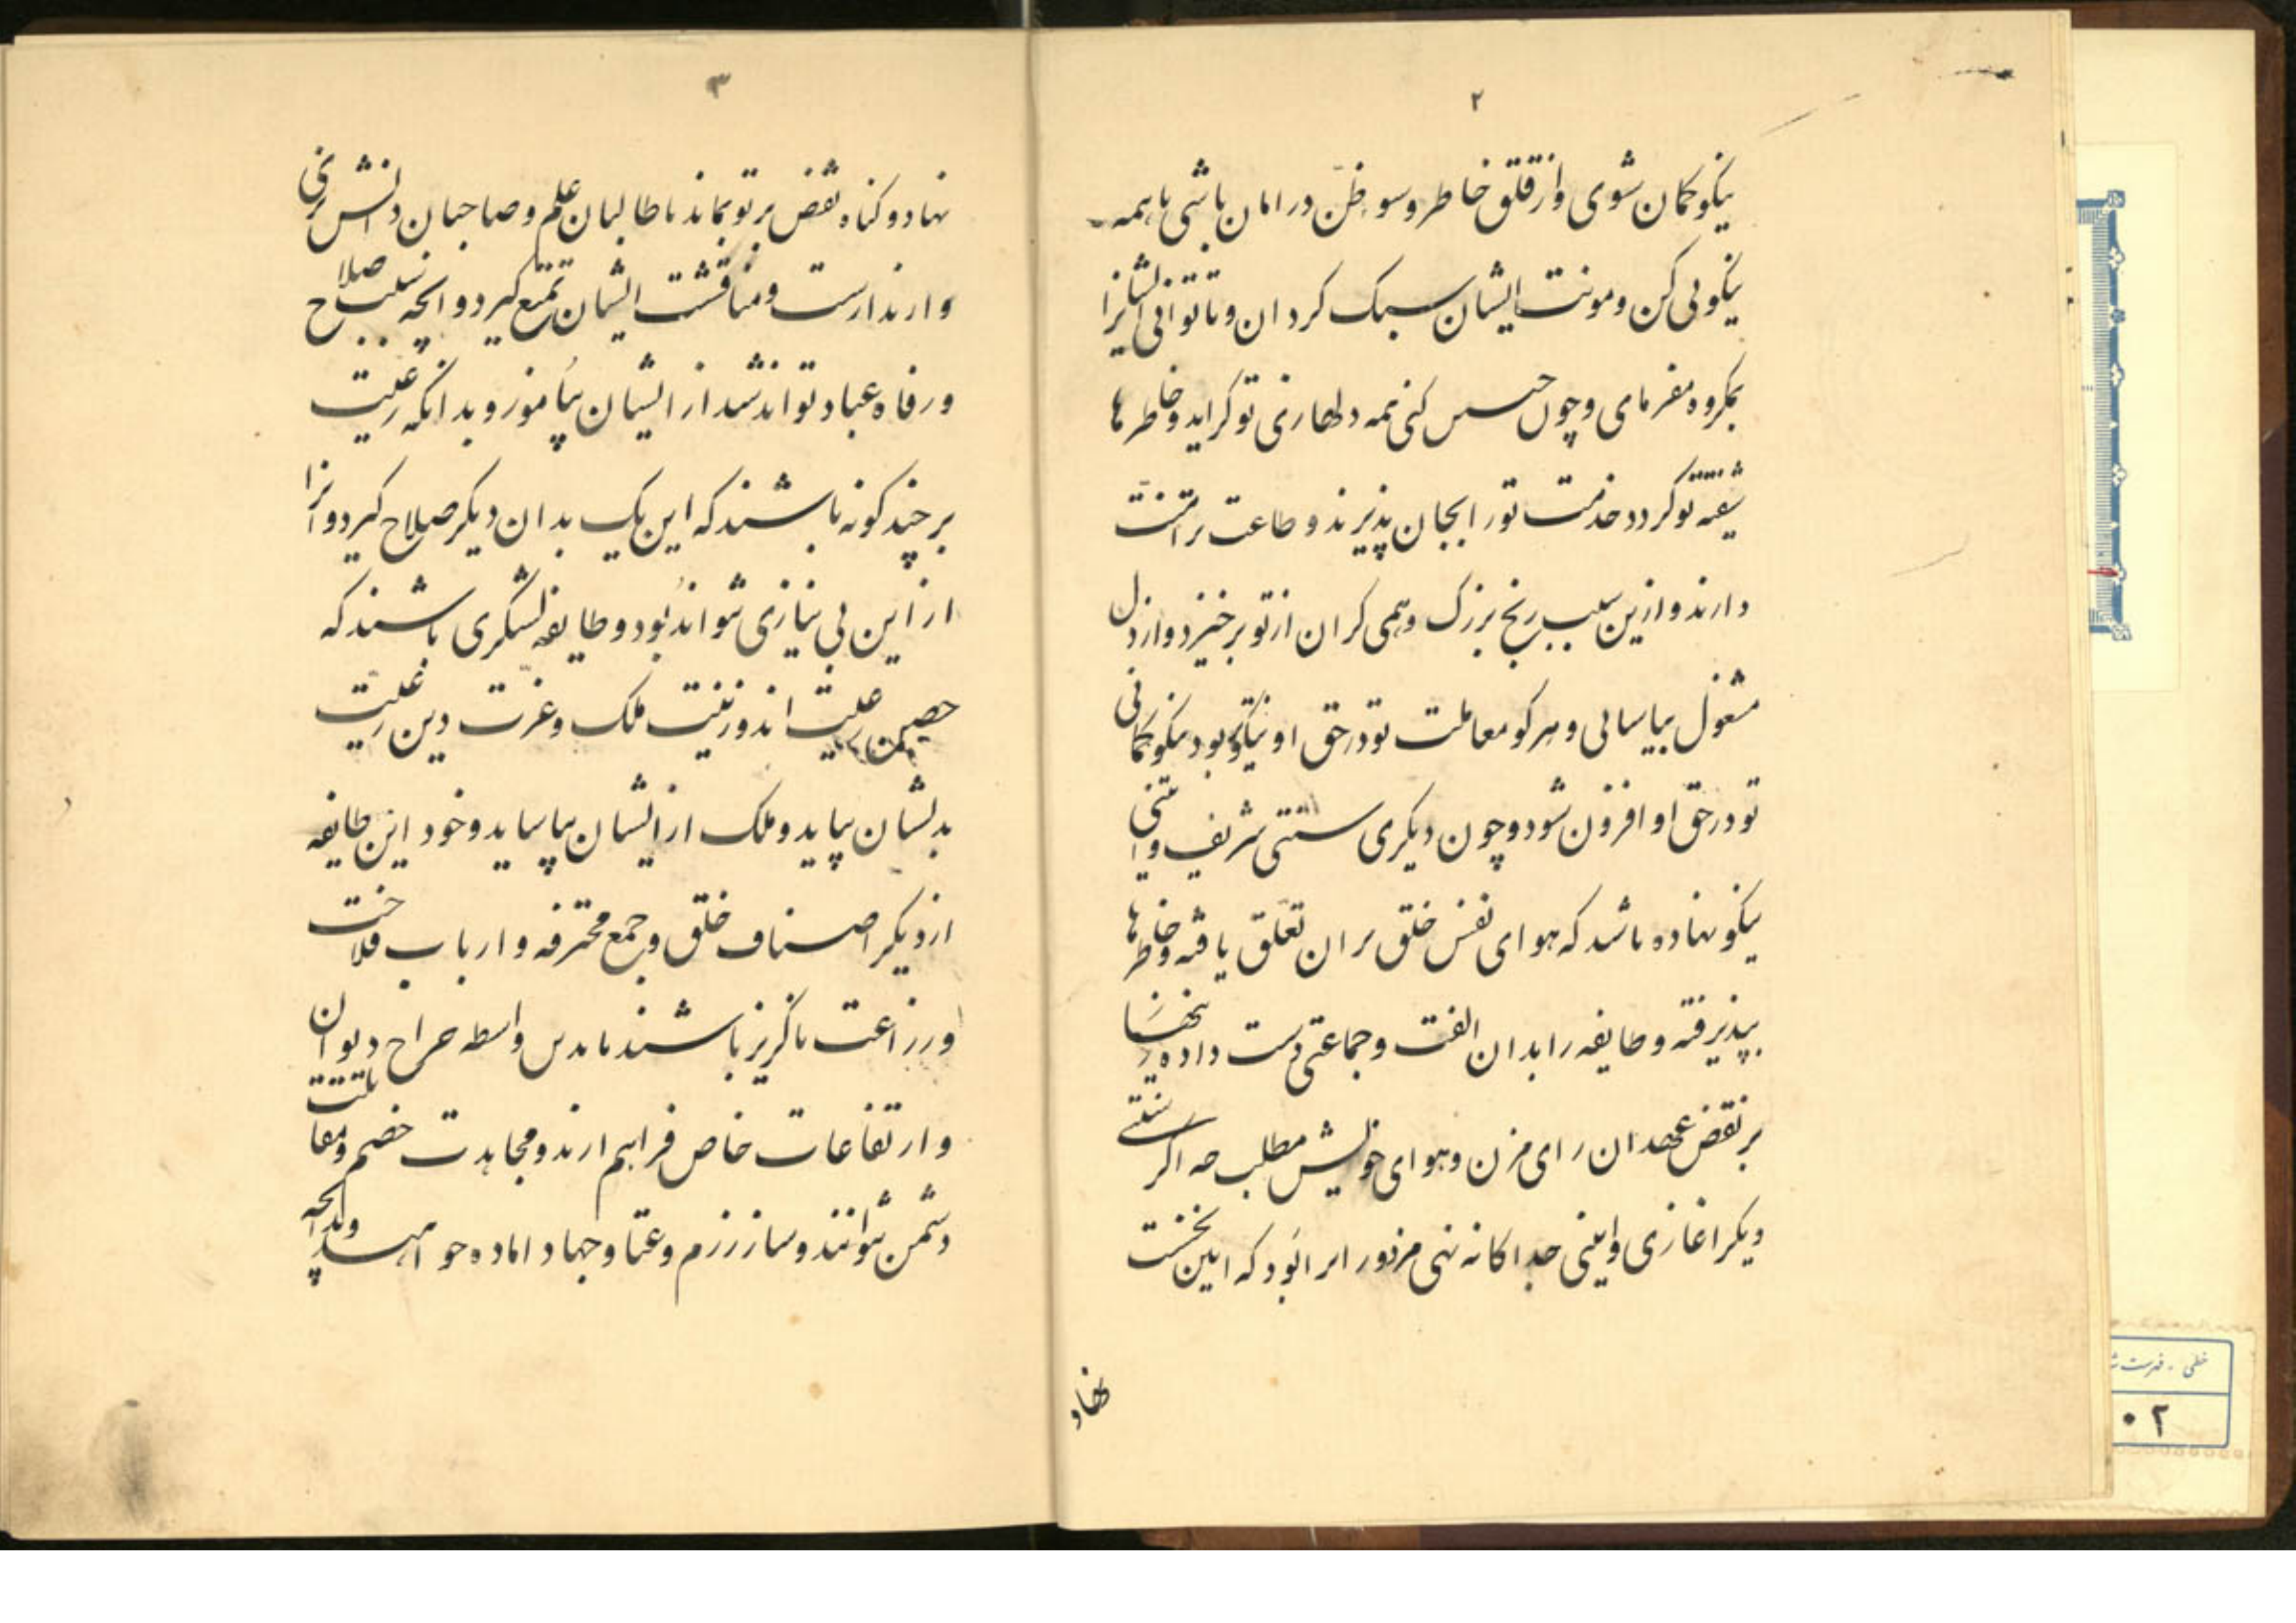 ۲
نیکو کمان شوی و از قلق خاطر و سو ظنّ در امان باشی با همه
نیکویی کن و مونت ایشان سبک کردان و تا توانی ایشانرا
بمکروه مفرمای و چون کنی همه دلها زی تو کراید و خاطرها
شیفته تو کردد خدمت تو را بجان پذیرند و طاعت ترا منّت
دارند و ازین سبب رنج بزرک و همی کران از تو برخیزد و از دل
مشغول بیاسائی و هر کو معاملت تو در حق او نیکو بود نیکو کمانی
تو در حق او افزون شود و چون دیکری سنتی شریف و ائینی
نیکو نهاده باشد که هوای نفس خلق بران تعلّق یافته و خاطرها
بپذیرفته و طایفه را بدان الفت و جماعتی دست داده زنهار
بر نقض عهد ان رای مزن و هوای خویش مطلب چه اکر سنتی
دیکر اغازی و ایینی جداکانه نهی مزد ور ابر انرا بود که ایین نخست
نهاد
۳
نهاد و کناه نقض بر تو بماند با طالبان علم و صاحبان دانش رنجی
وارند ارست و مناقشت ایشان تمتع کیر و انچه سبب صلاح
و رفاه عباد تواند شد از ایشان بیاموز و بدانکه رعیّت
بر چند کونه باشند که این یک بدان دیکر صلاح کیرد و انرا
از این بی نیازی نتواند بود و طایفه لشکری باشند که
حصین رعیت اند و زینت ملک و عزت دین رعیّت
بدیشان بپاید و ملک از ایشان بیاساید و خود این طایفه
از دیکر اصناف خلق و جمع محترفه و ارباب فلاحت
و زراعت ناکریز باشند تا بدین واسطه خراج دیوان
و ارتفاعات خاص فراهم ارند و مجاهدت خصم و مقاتلت
دشمن بتوانند و ساز رزم و عتاد جهاد اماده و بدانچه
خطی - فهرست
۰۲